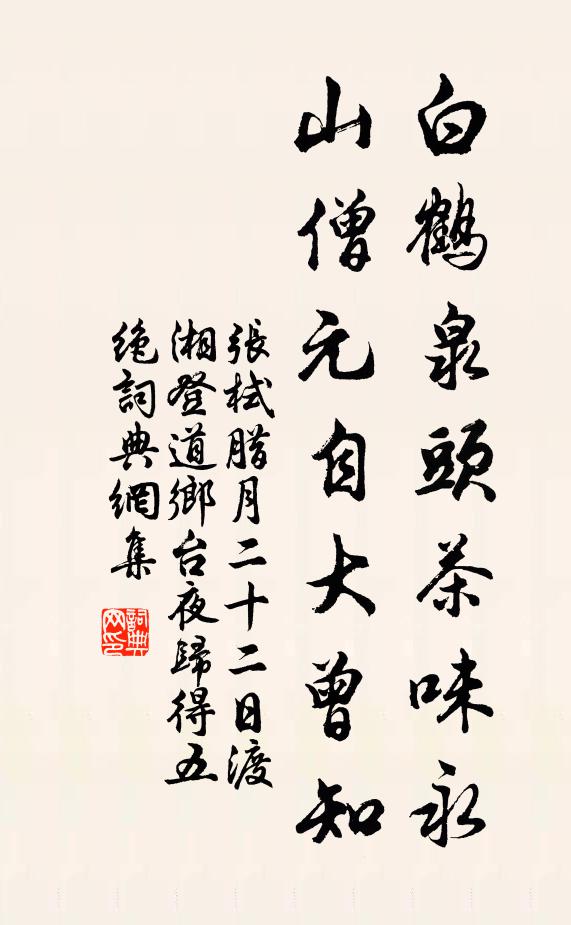 白鶴泉頭茶味永
山僧元自大曾知
張栻腊月二十二日渡
湘登道鄉台夜歸得五
絶詞典網集
詞典網印